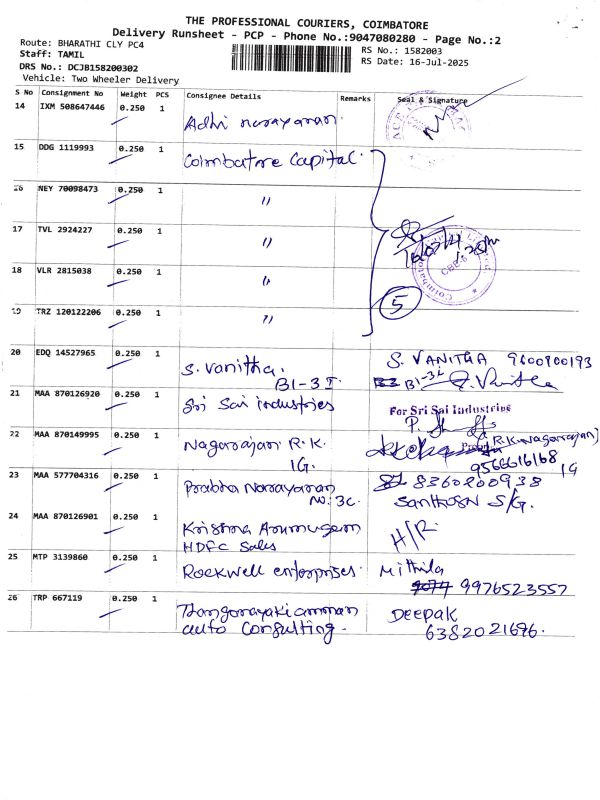 THE PROFESSIONAL COURIERS, COIMBATORE
Delivery Runsheet - PCP - Phone No.:9047080280 - Page No.:2
Route: BHARATHI CLY PC4
RS No.: 1582003
Staff: TAMIL
RS Date: 16-Jul-2025
DRS No.: DCJB158200302
Vehicle: Two Wheeler Delivery
S No Consignment No Weight PCS Consignee Details Remarks Seal & Signature
14 IXM 508647446 0.250 1 Adhi narayanan.
15 DDG 1119993 0.250 1 Coimbatore Capital.
16 NEY 70098473 0.250 1 "
17 TVL 2924227 0.250 1 "
18 VLR 2815038 0.250 1 "
5
19 TRZ 120122206 0.250 1 "
20 EDQ 14527965 0.250 1 S. Vanitha. S. VANITHA 9600900193
B1-3I. B1-3I S. Vanitha
21 MAA 870126920 0.250 1 Sri Sai industries For Sri Sai Industries
22 MAA 870149995 0.250 1 Nagarajan R.K. (R.K. Nagarajan)
1G. 9566616168 1G
23 MAA 577704316 0.250 1 Prabha Narayanan 8360200938
No: 3C. Santhosh S/G.
24 MAA 870126901 0.250 1 Krishna Arumugam H/R.
HDFC Sales
25 MTP 3139860 0.250 1 Rockwell enterprises. Mithila
9976523557
26 TRP 667119 0.250 1 Thanganayakiamman DEEPAK
auto Consulting. 6382021696.